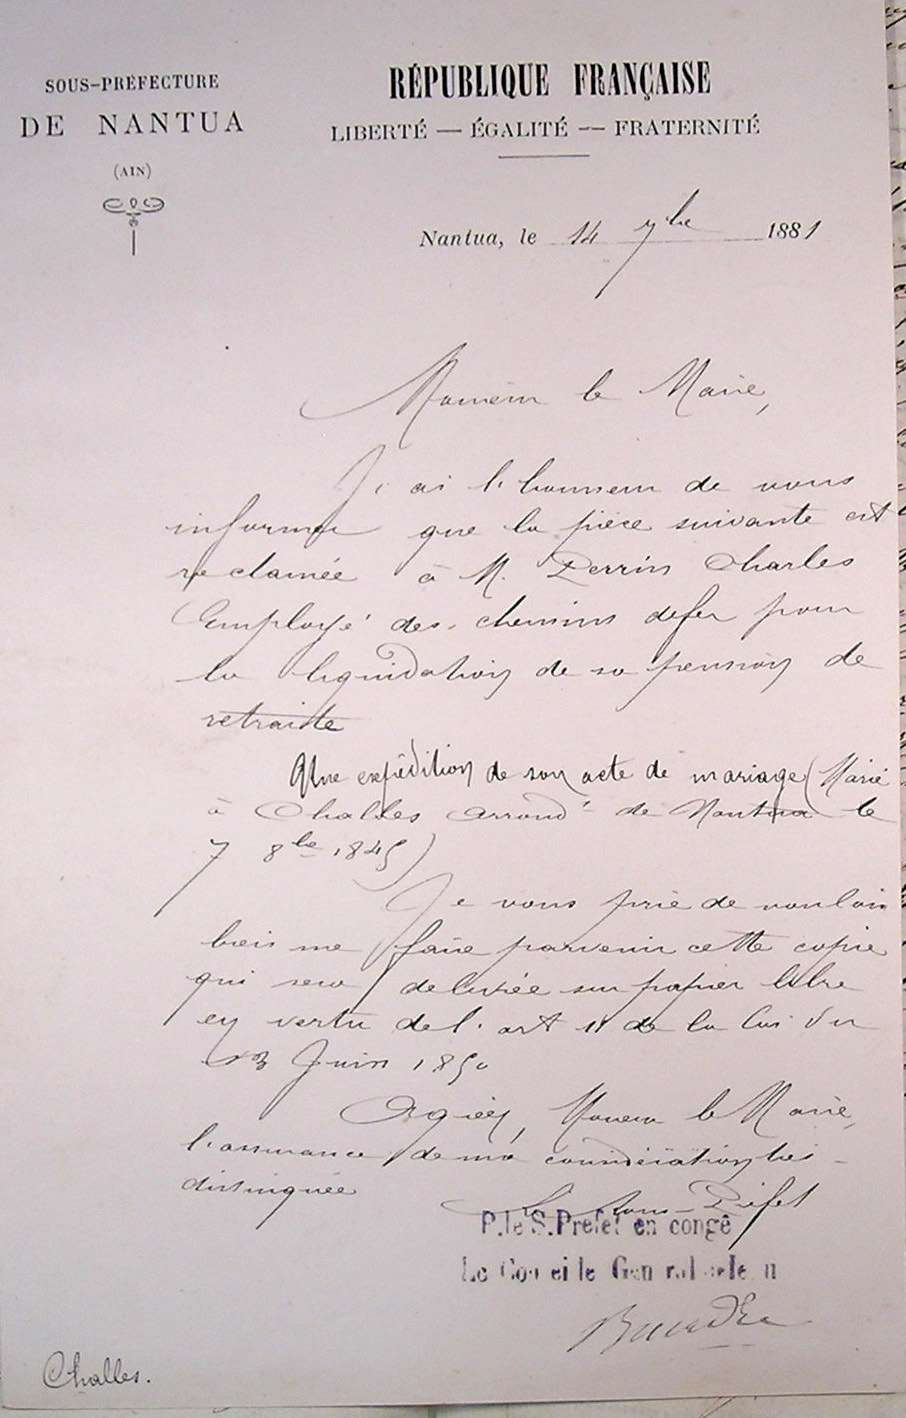 SOUS-PRÉFECTURE
DE NANTUA
(AIN)
RÉPUBLIQUE FRANÇAISE
LIBERTÉ — ÉGALITÉ — FRATERNITÉ
Nantua, le 14 7bre 1881
Monsieur le Maire,
J'ai l'honneur de vous
informer que la pièce suivante est
réclamée à M. Perrin Charles
Employé des chemins de fer pour
la liquidation de sa pension de
retraite
Une expédition de son acte de mariage (Marié
à Challes arrondt de Nantua le
7 8bre 1845)
Je vous prie de vouloir
bien me faire parvenir cette copie
qui sera délivrée sur papier libre
en vertu de l'art 11 de la loi du
Juin 1850
Agréez, Monsieur le Maire,
l'assurance de ma considération très-
distinguée
Le Sous-Préfet
P. le S. Préfet en congé
Le Con ei le Gén ral
Challes.